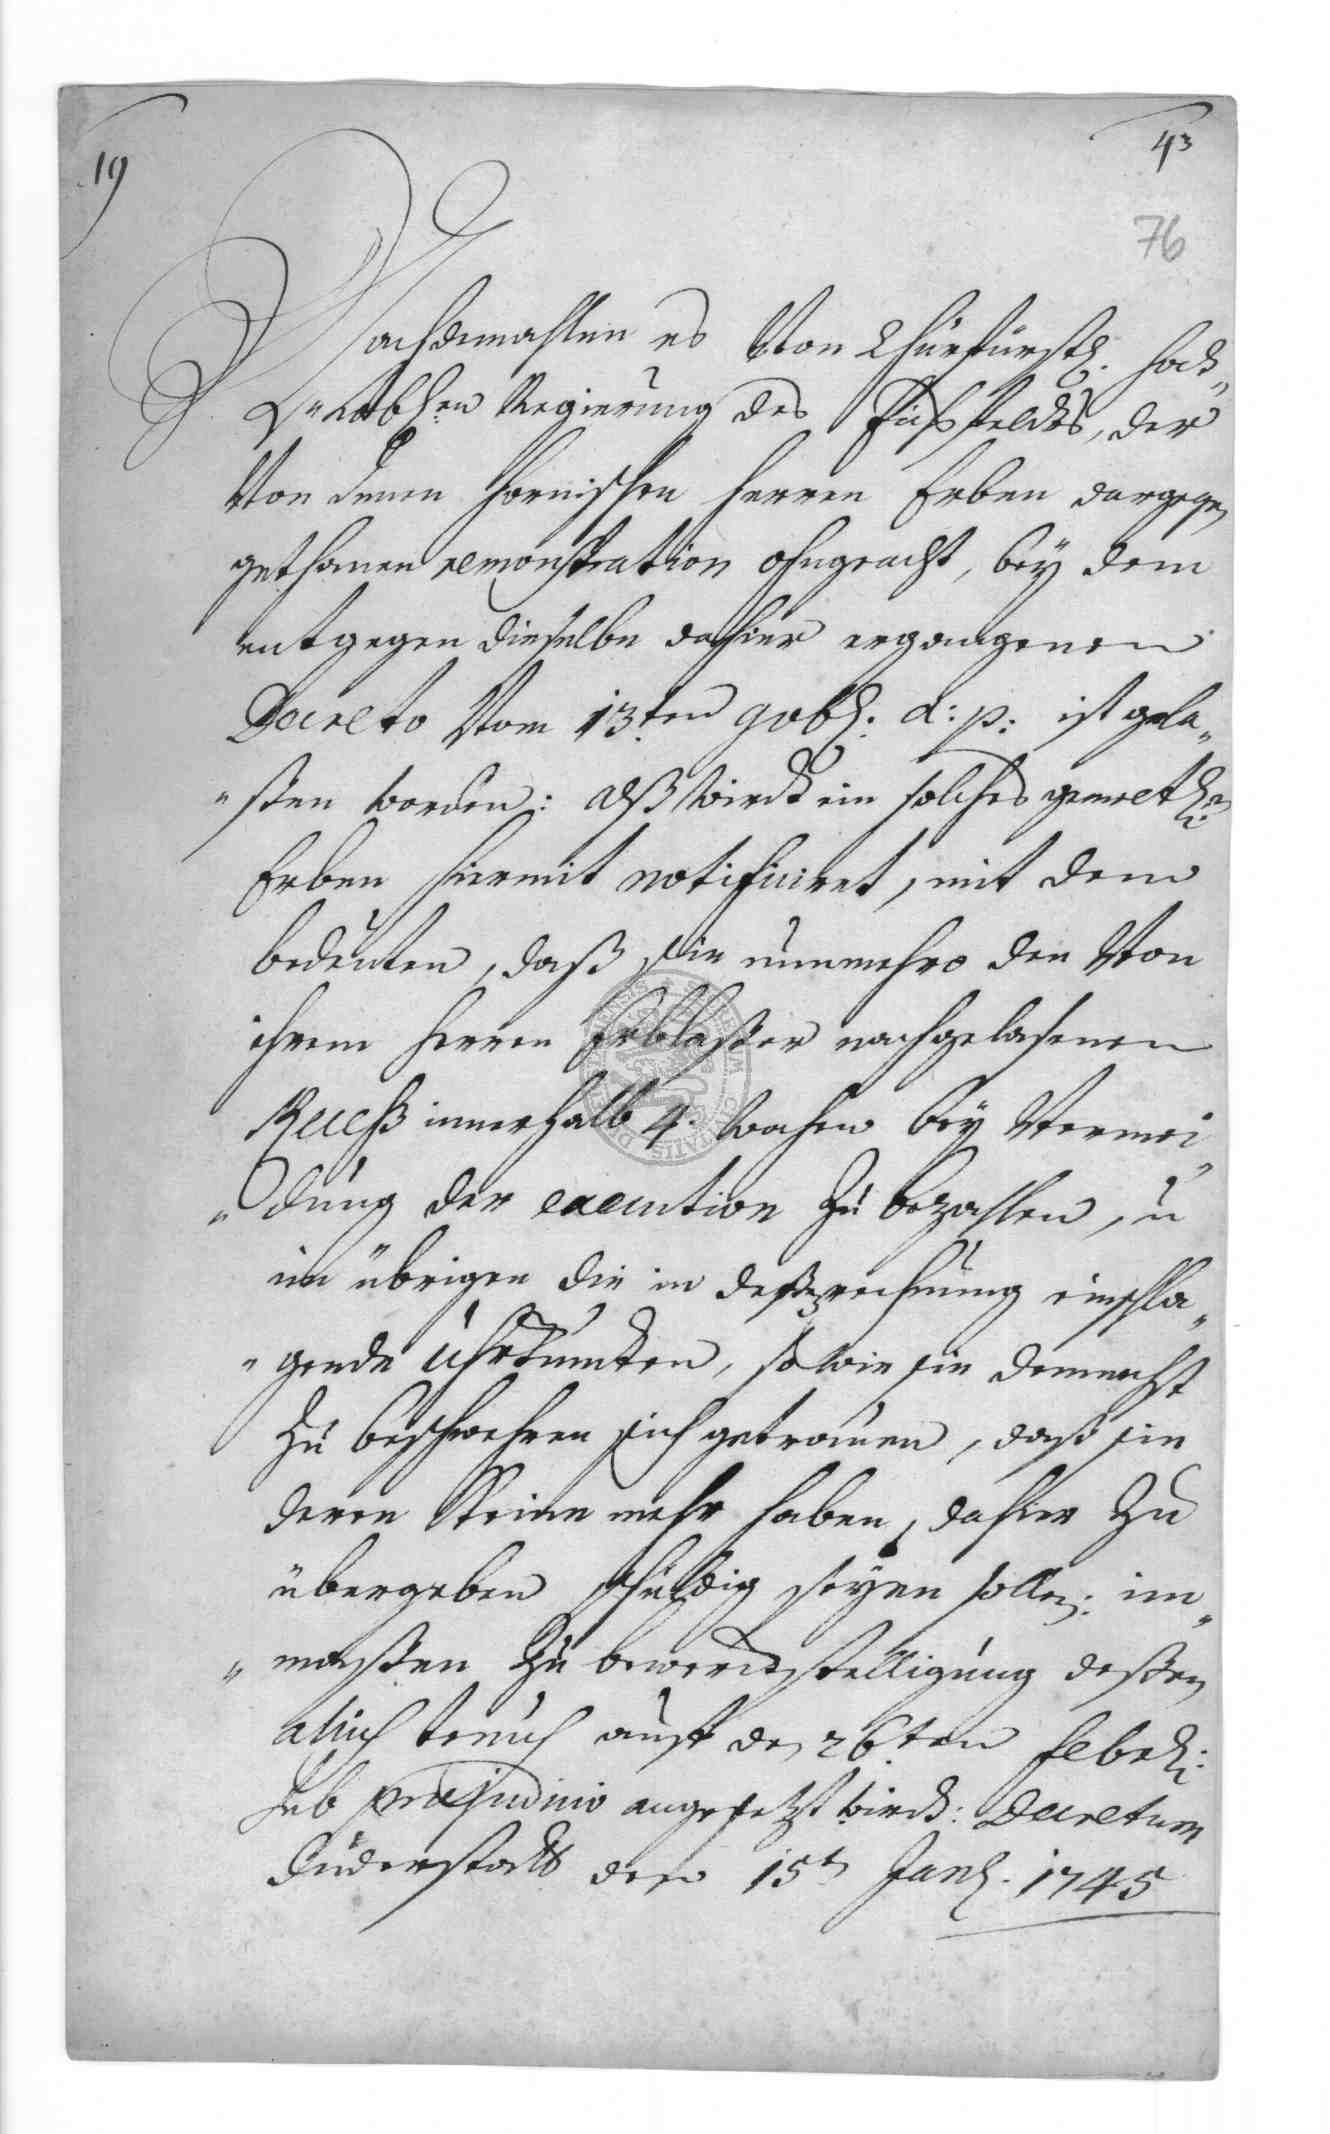 19
43
76
Nachdemahlen es Von Churfürstl. hoch„
Löbl.en Regierung des Eichsfeldts, der
Von denen Hornischen Herren Erben dargegen
gethanen remonstration ohngeacht, bey dem
entgegen dieselbe dahier ergangenen
Decreto Vom 13ten 9vbr. a: p: ist gela„
„ßen worden: Alß wird ein solches gemelten
Erben hiermit notificiret, mit dem
bedeuten, daß sie nunmehro den Von
ihrem Herren Erblaßer nachgelaßenen
Receß innerhalb 4. wochen bey Vermei„
„dung der execution zu bezahlen, u
im übrigen die in deßen rechnung einschla„
„gende Uhrkunden, so wie sie demnechst
zu beschwehren sich getrauen, daß sie
deren Keine mehr haben, dahier zu
übergeben schuldig seyen sollen: im„
„maßen zu bewerckstelligung deßen
auff den 26ten Febr:
sub praejudicio angesetzt wird: Decretum
Duderstadt den 15t Janr. 1745